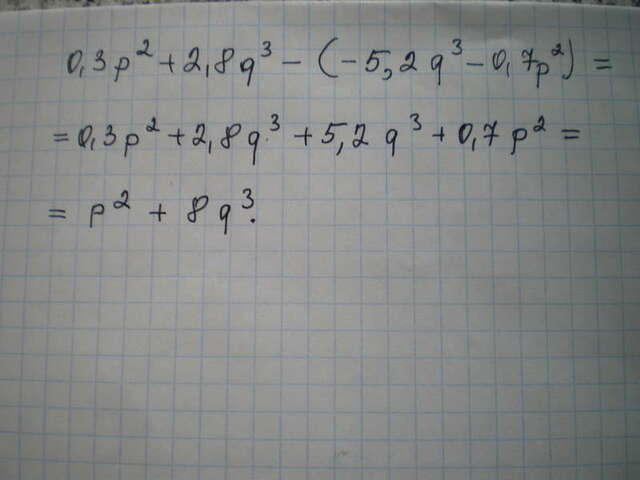 0,3p² + 2,8q³ - (-5,2q³ - 0,7p²) =
= 0,3p² + 2,8q³ + 5,2q³ + 0,7p² =
= p² + 8q³.